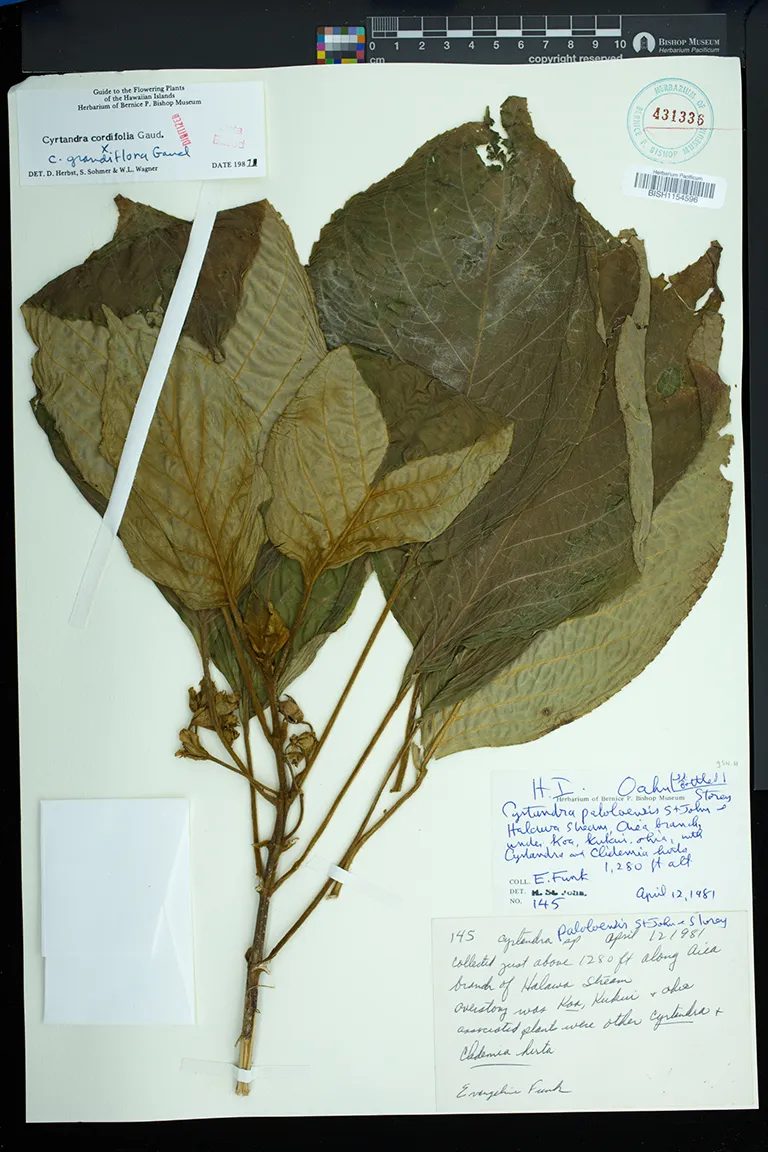 0 1 2 3 4 5 6 7 8 9 10
cm
copyright reserved
BISHOP MUSEUM
Herbarium Pacificum
Guide to the Flowering Plants
of the Hawaiian Islands
Herbarium of Bernice P. Bishop Museum
Cyrtandra cordifolia Gaud.
x
C. grandiflora Gaud
DATE 1987
DET. D. Herbst, S. Sohmer & W.L. Wagner
DIGITIZED
HERBARIUM OF
431336
BERNICE P. BISHOP MUSEUM
Herbarium Pacificum
BISH1154596
H.I. Oahu
Herbarium of Bernice P. Bishop Museum
Cyrtandra paloloensis St.John &
Storey
Halawa Stream, Aiea branch,
under Koa, kukui, ohia, with
Cyrtandra and Clidemia hirta
1,280 ft alt
COLL. E. Funk
DET. H. St. John.
NO. 145
April 12, 1981
paloloensis St.John & Storey
145 Cyrtandra sp April 12 1981
collected just above 1280 ft along Aiea
branch of Halawa Stream
overstory was Koa, Kukui & ohia
associated plants were other Cyrtandra +
Clidemia hirta
Evangeline Funk